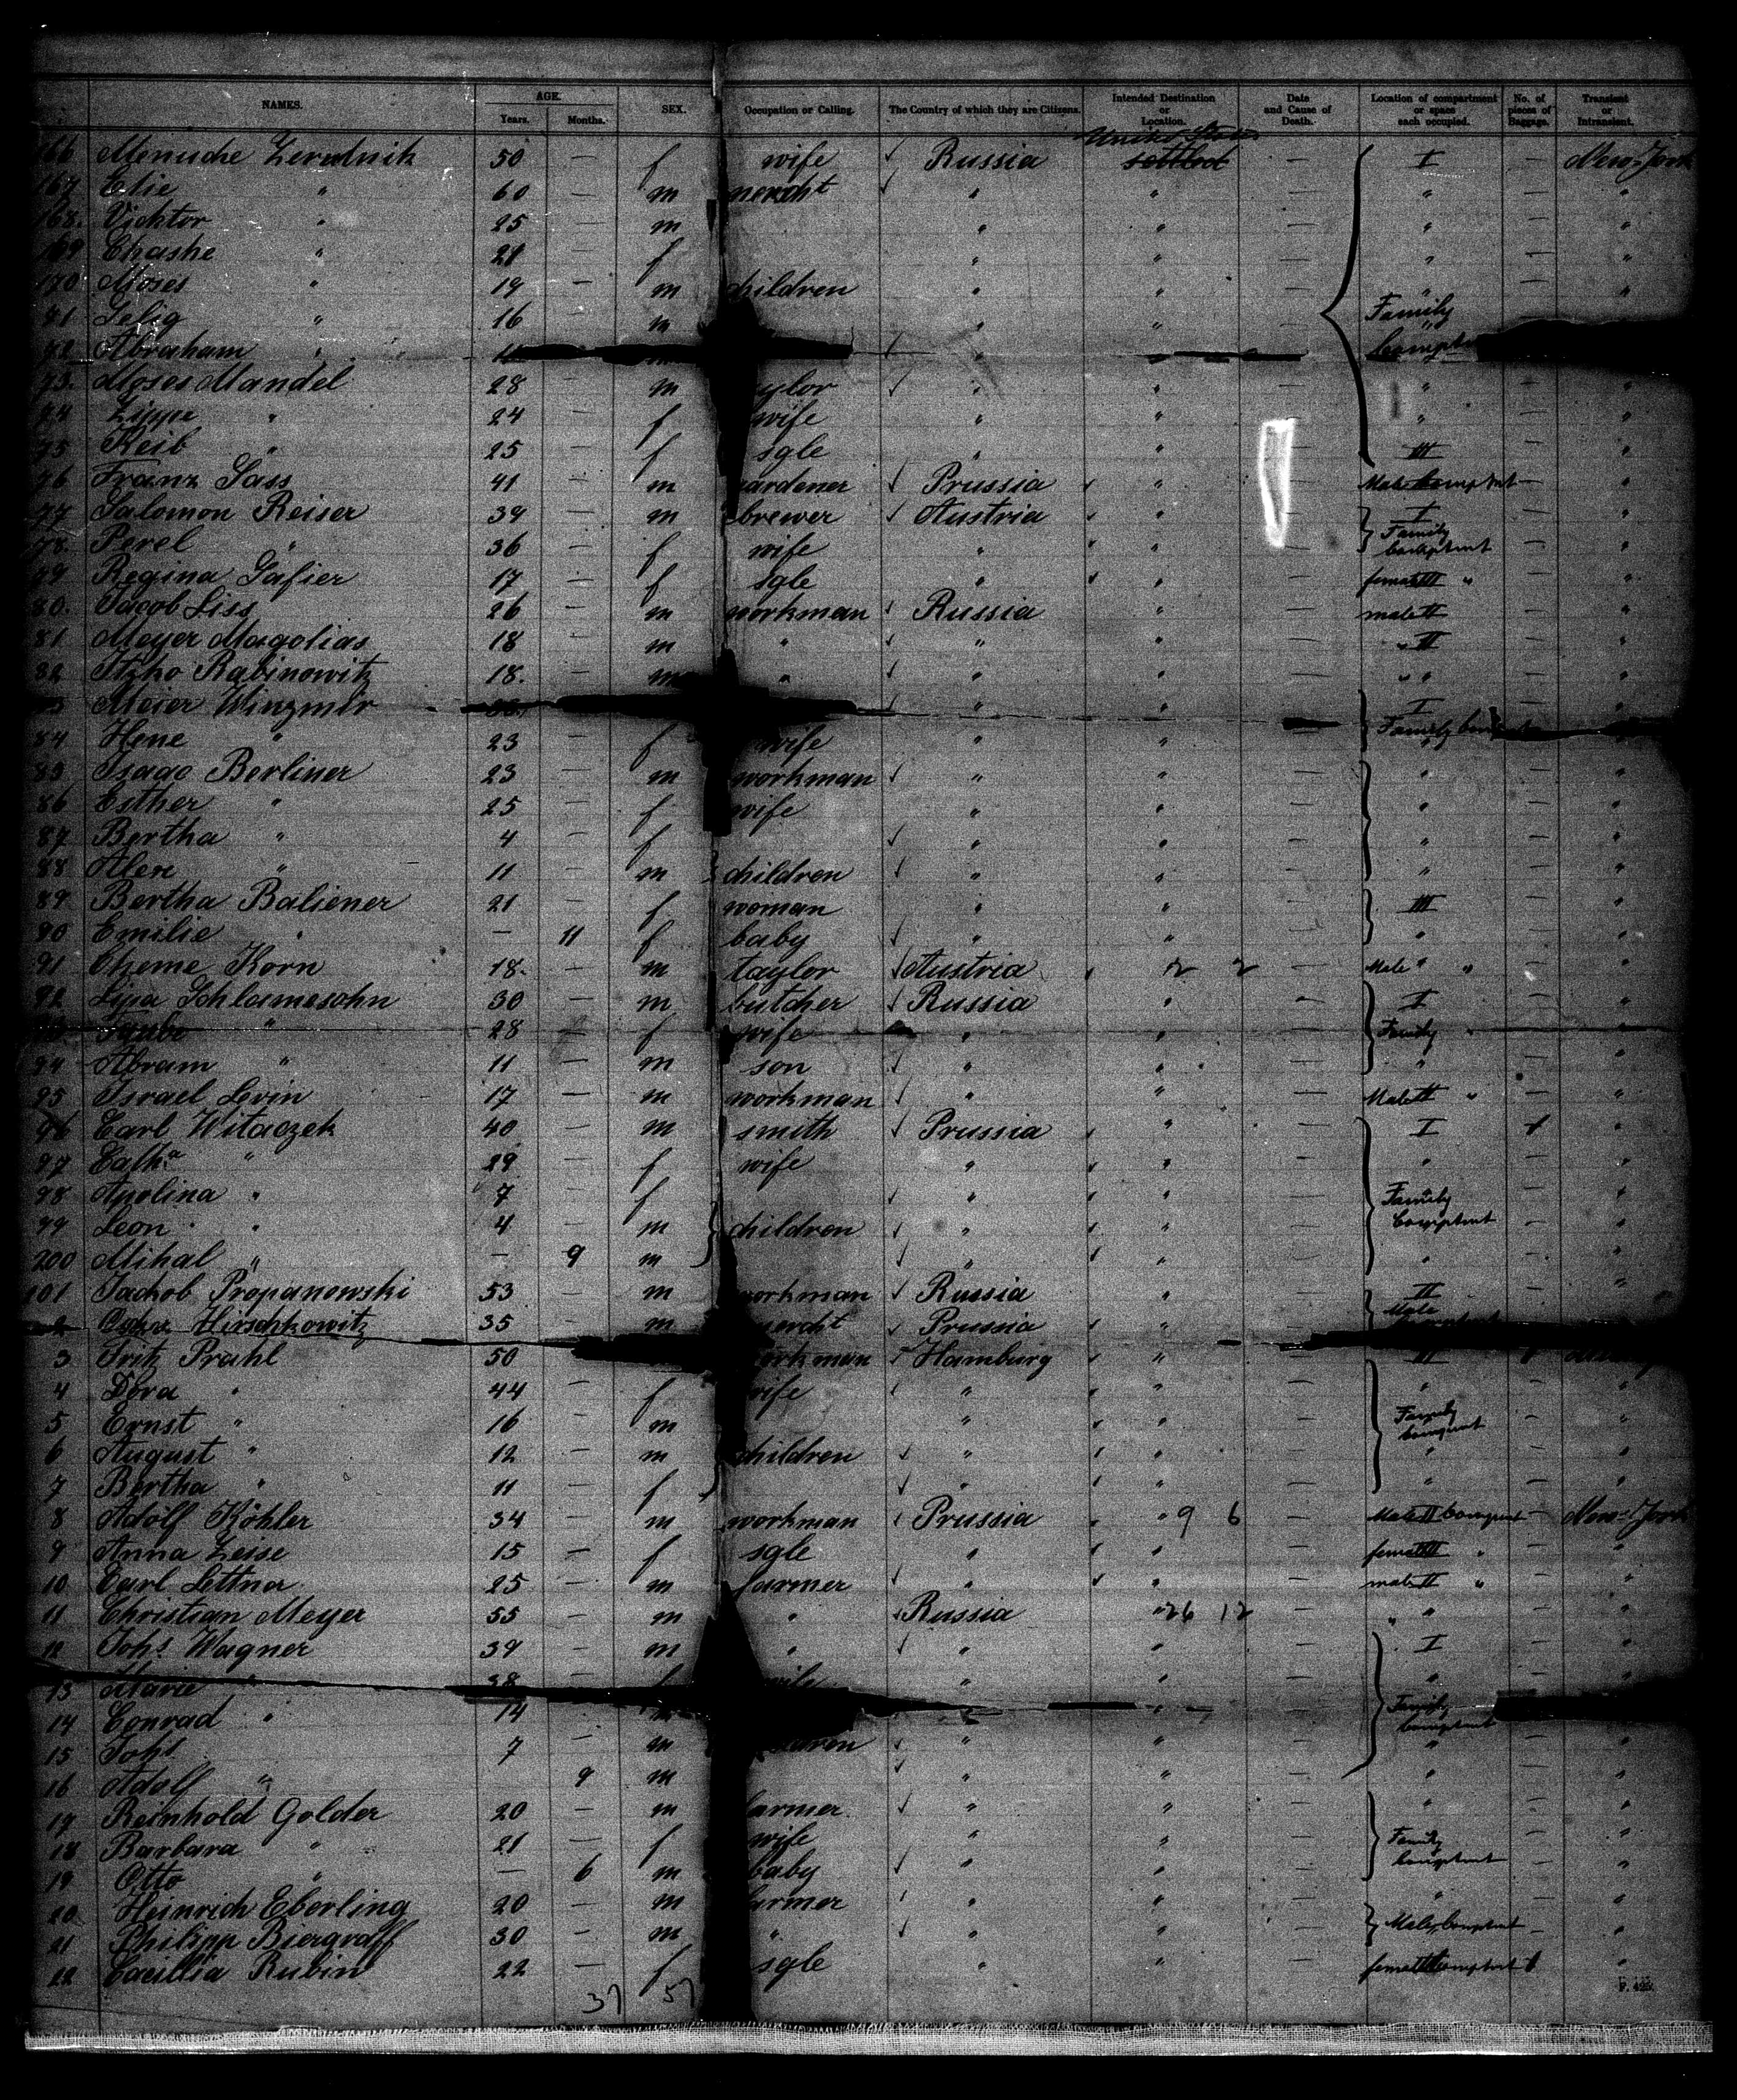 NAMES. AGE. Years. Months. SEX. Occupation or Calling. The Country of which they are Citizens. Intended Destination or Location. Date and Cause of Death. Location of compartment or space each occupied. No. of pieces of Baggage. Transient or Intransient.
United States
166 Menuche 50 — f wife Russia settled — I — New-York
167 Elie " 60 — m mercht " " — " — "
168. Vicktor " 25 — m " " — " — "
169 Chashe " 21 — f " " — " — "
170 Moses " 19 — m children " " — " — "
71 Selig " 16 — m " " — Family — "
72 Abraham " " " Compt
73. Moses Mandel 28 — m ylor " " — " — "
74 Zippe " 24 — f wife " " — " — "
75 Reib " 25 — f sgle " " — III — "
76 Franz Sass 41 — m gardener Prussia " — Male Comptmt — "
77 Salomon Reiser 39 — m brewer Austria " — I — "
78. Perel " 36 — f wife " " — Family Comptment — "
79 Regina Safier 17 — f sgle " " — female III " — "
80. Jacob Liss 26 — m workman Russia " — male II — "
81 Meyer Magolias 18 — m " " " — " II — "
82 Itzko Rabinowitz 18. — m " " " — " " — "
3 Meier " " I — "
84 Hene " 23 — f wife " " — Family "
85 Isaac Berliner 23 — m workman " " — " — "
86 Esther " 25 — f wife " " — " — "
87 Bertha " 4 — f " " — " — "
88 " 11 — m children " " — " — "
89 Bertha Baliener 21 — f woman " " — III — "
90 Emilie " — 11 f baby " " — " — "
91 Cheme Korn 18. — m taylor Austria 2 2 — Male " " — "
92 Lipa Schlamesohn 30 — m butcher Russia " — I — "
93. Taube " 28 — f wife " " — Family " — "
94 Abram " 11 — m son " " — " — "
95 Israel Levin 17 — m workman " " — Male II " — "
96 Carl Witaczek 40 — m smith Prussia " — I "
97 Cath.a " 29 — f wife " " — " — "
98 Apolina " 7 — f " " — Family — "
99 Leon " 4 — m children " " — Comptmt — "
200 Mihal " — 9 m " " — " — "
101 Jackob Propanowski 53 — m workman Russia " — II — "
2 Hirschkowitz 35 — m mercht Prussia " — Male
3 Fritz Prahl 50 — workman Hamburg " — III
4 Dora " 44 — f wife " " — " — "
5 Ernst " 16 — m " " — Family Comptmt — "
6 August " 12 — m children " " — " — "
7 Bertha " 11 — f " " — " — "
8 Adolf Köhler 34 — m workman Prussia " 9 6 — Male II Comptmt — New-York
9 Anna Zeise 15 — f sgle " " — female III " — "
10 Carl Lettna 25 — m farmer " " — male II " — "
11 Christian Meyer 55 — m " Russia " 26 12 — " " — "
12 Johs. Wagner 39 — m " " " — I — "
13 Marie " 38 f wife " " — " — "
14 Conrad " 14 — " " Family Comptmt
15 Johs. 7 — m dren " " — " — "
16 Adolf " 9 m " " — " — "
17 Reinhold Golder 20 — m farmer " " — " — "
18 Barbara " 21 — f wife " " — Family — "
19 Otto " — 6 m baby " " — Comptmt — "
20 Heinrich Eberling 20 — m farmer " " — " — "
21 Philipp Biergraff 30 — m " " " — Male Comptmt — "
22 Caecilia Rubin 22 — f sgle " " — female Comptmt "
37 57